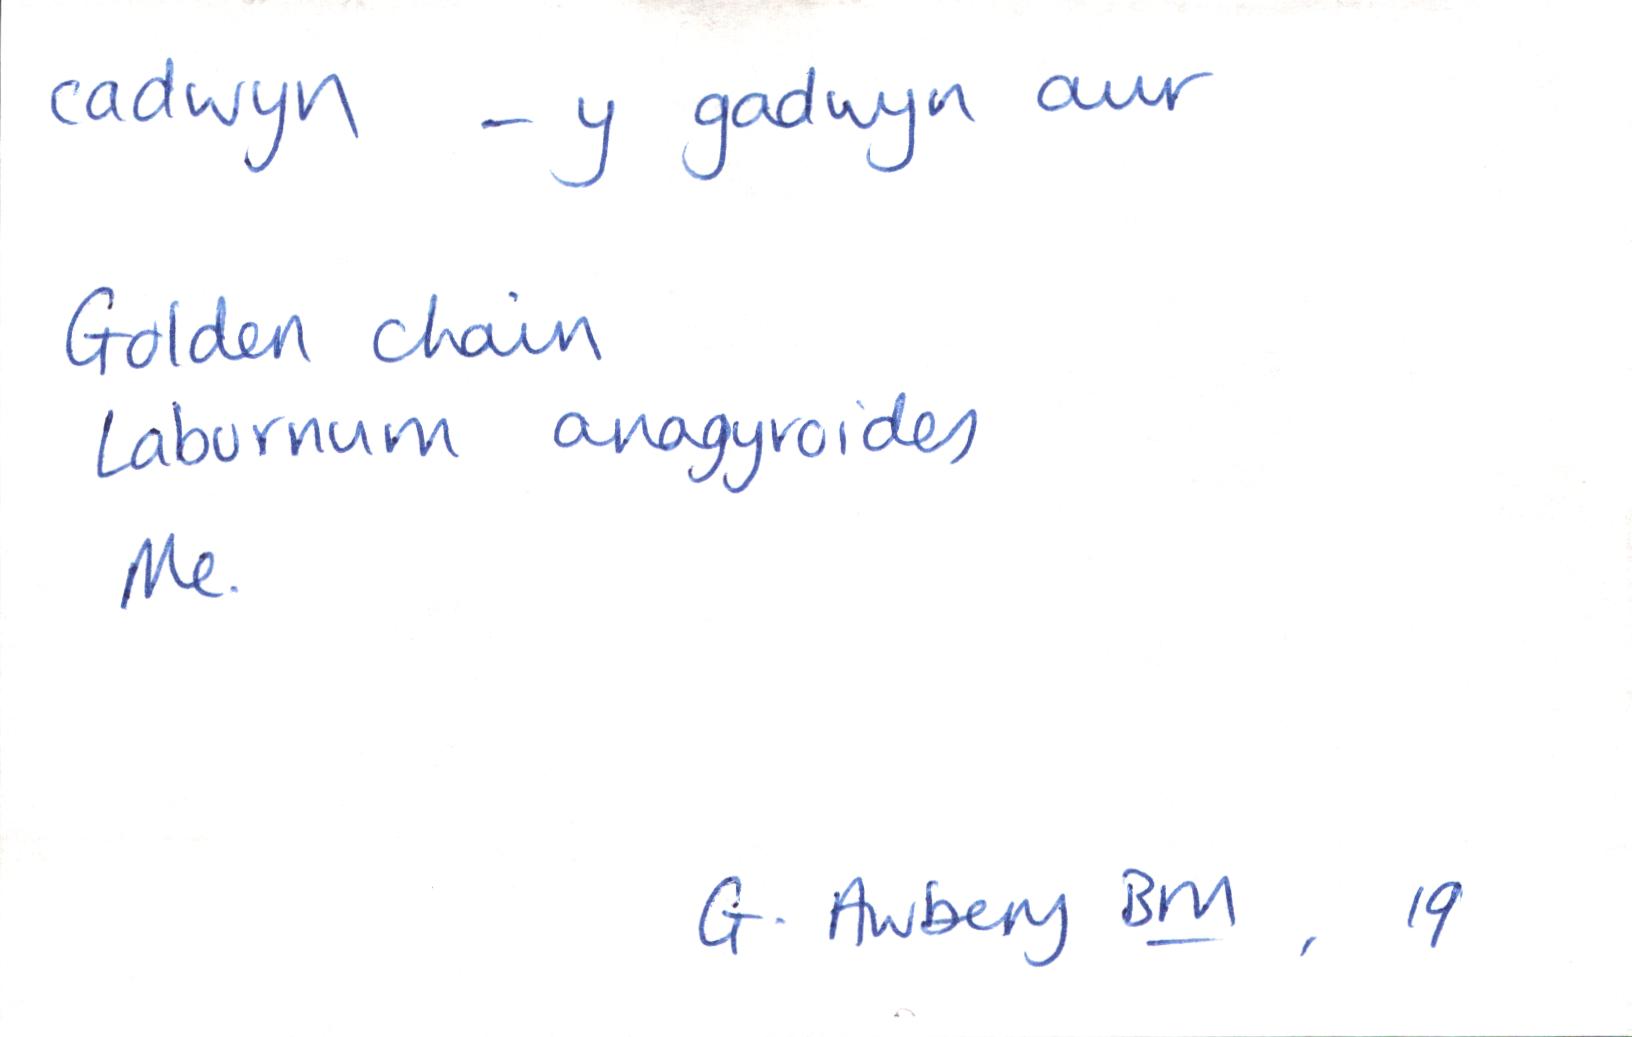 cadwyn - y gadwyn aur
Golden chain
Laburnum anagyroides
Me.
G. Awbery BM, 19